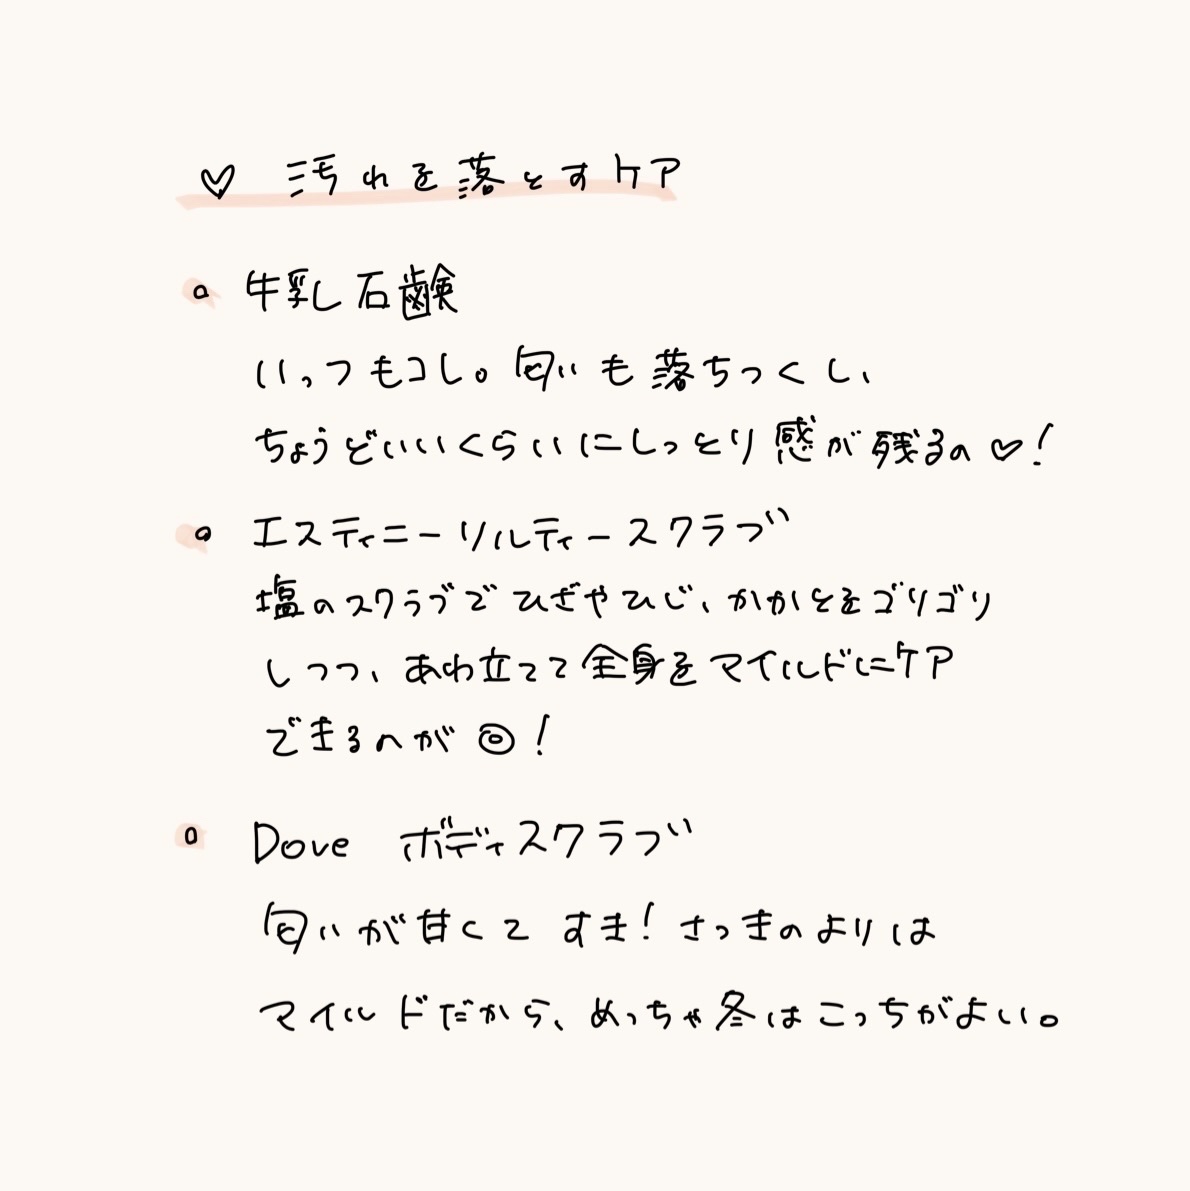 ♡ 汚れを落とすケア
o 牛乳石鹸
いっつもコレ。匂いも落ちつくし、
ちょうどいいくらいにしっとり感が残るの♡!
o エスティニーソルティースクラブ
塩のスクラブでひざやひじ、かかとをゴリゴリ
しつつ、あわ立てて全身をマイルドにケア
できるのが◎!
o Dove ボディスクラブ
匂いが甘くてすき!さっきのよりは
マイルドだから、めっちゃ冬はこっちがよい。